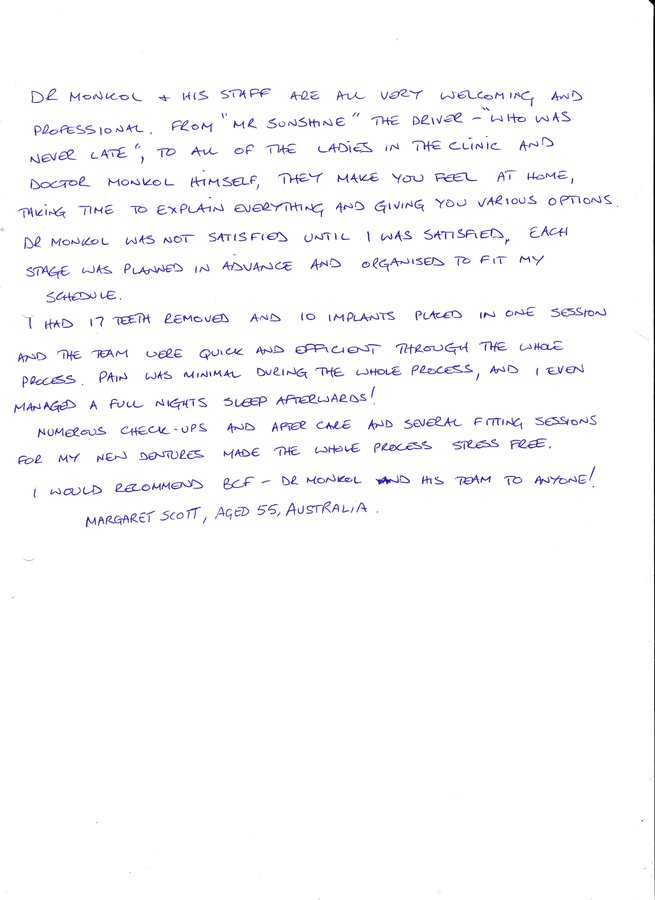 DR MONKOL + HIS STAFF ARE ALL VERY WELCOMING AND
PROFESSIONAL. FROM "MR SUNSHINE" THE DRIVER - "WHO WAS
NEVER LATE", TO ALL OF THE LADIES IN THE CLINIC AND
DOCTOR MONKOL HIMSELF, THEY MAKE YOU FEEL AT HOME,
TAKING TIME TO EXPLAIN EVERYTHING AND GIVING YOU VARIOUS OPTIONS.
DR MONKOL WAS NOT SATISFIED UNTIL I WAS SATISFIED, EACH
STAGE WAS PLANNED IN ADVANCE AND ORGANISED TO FIT MY
SCHEDULE.
I HAD 17 TEETH REMOVED AND 10 IMPLANTS PLACED IN ONE SESSION
AND THE TEAM WERE QUICK AND EFFICIENT THROUGH THE WHOLE
PROCESS. PAIN WAS MINIMAL DURING THE WHOLE PROCESS, AND I EVEN
MANAGED A FULL NIGHTS SLEEP AFTERWARDS!
NUMEROUS CHECK-UPS AND AFTER CARE AND SEVERAL FITTING SESSIONS
FOR MY NEW DENTURES MADE THE WHOLE PROCESS STRESS FREE.
I WOULD RECOMMEND BCF - DR MONKOL AND HIS TEAM TO ANYONE!
MARGARET SCOTT, AGED 55, AUSTRALIA.